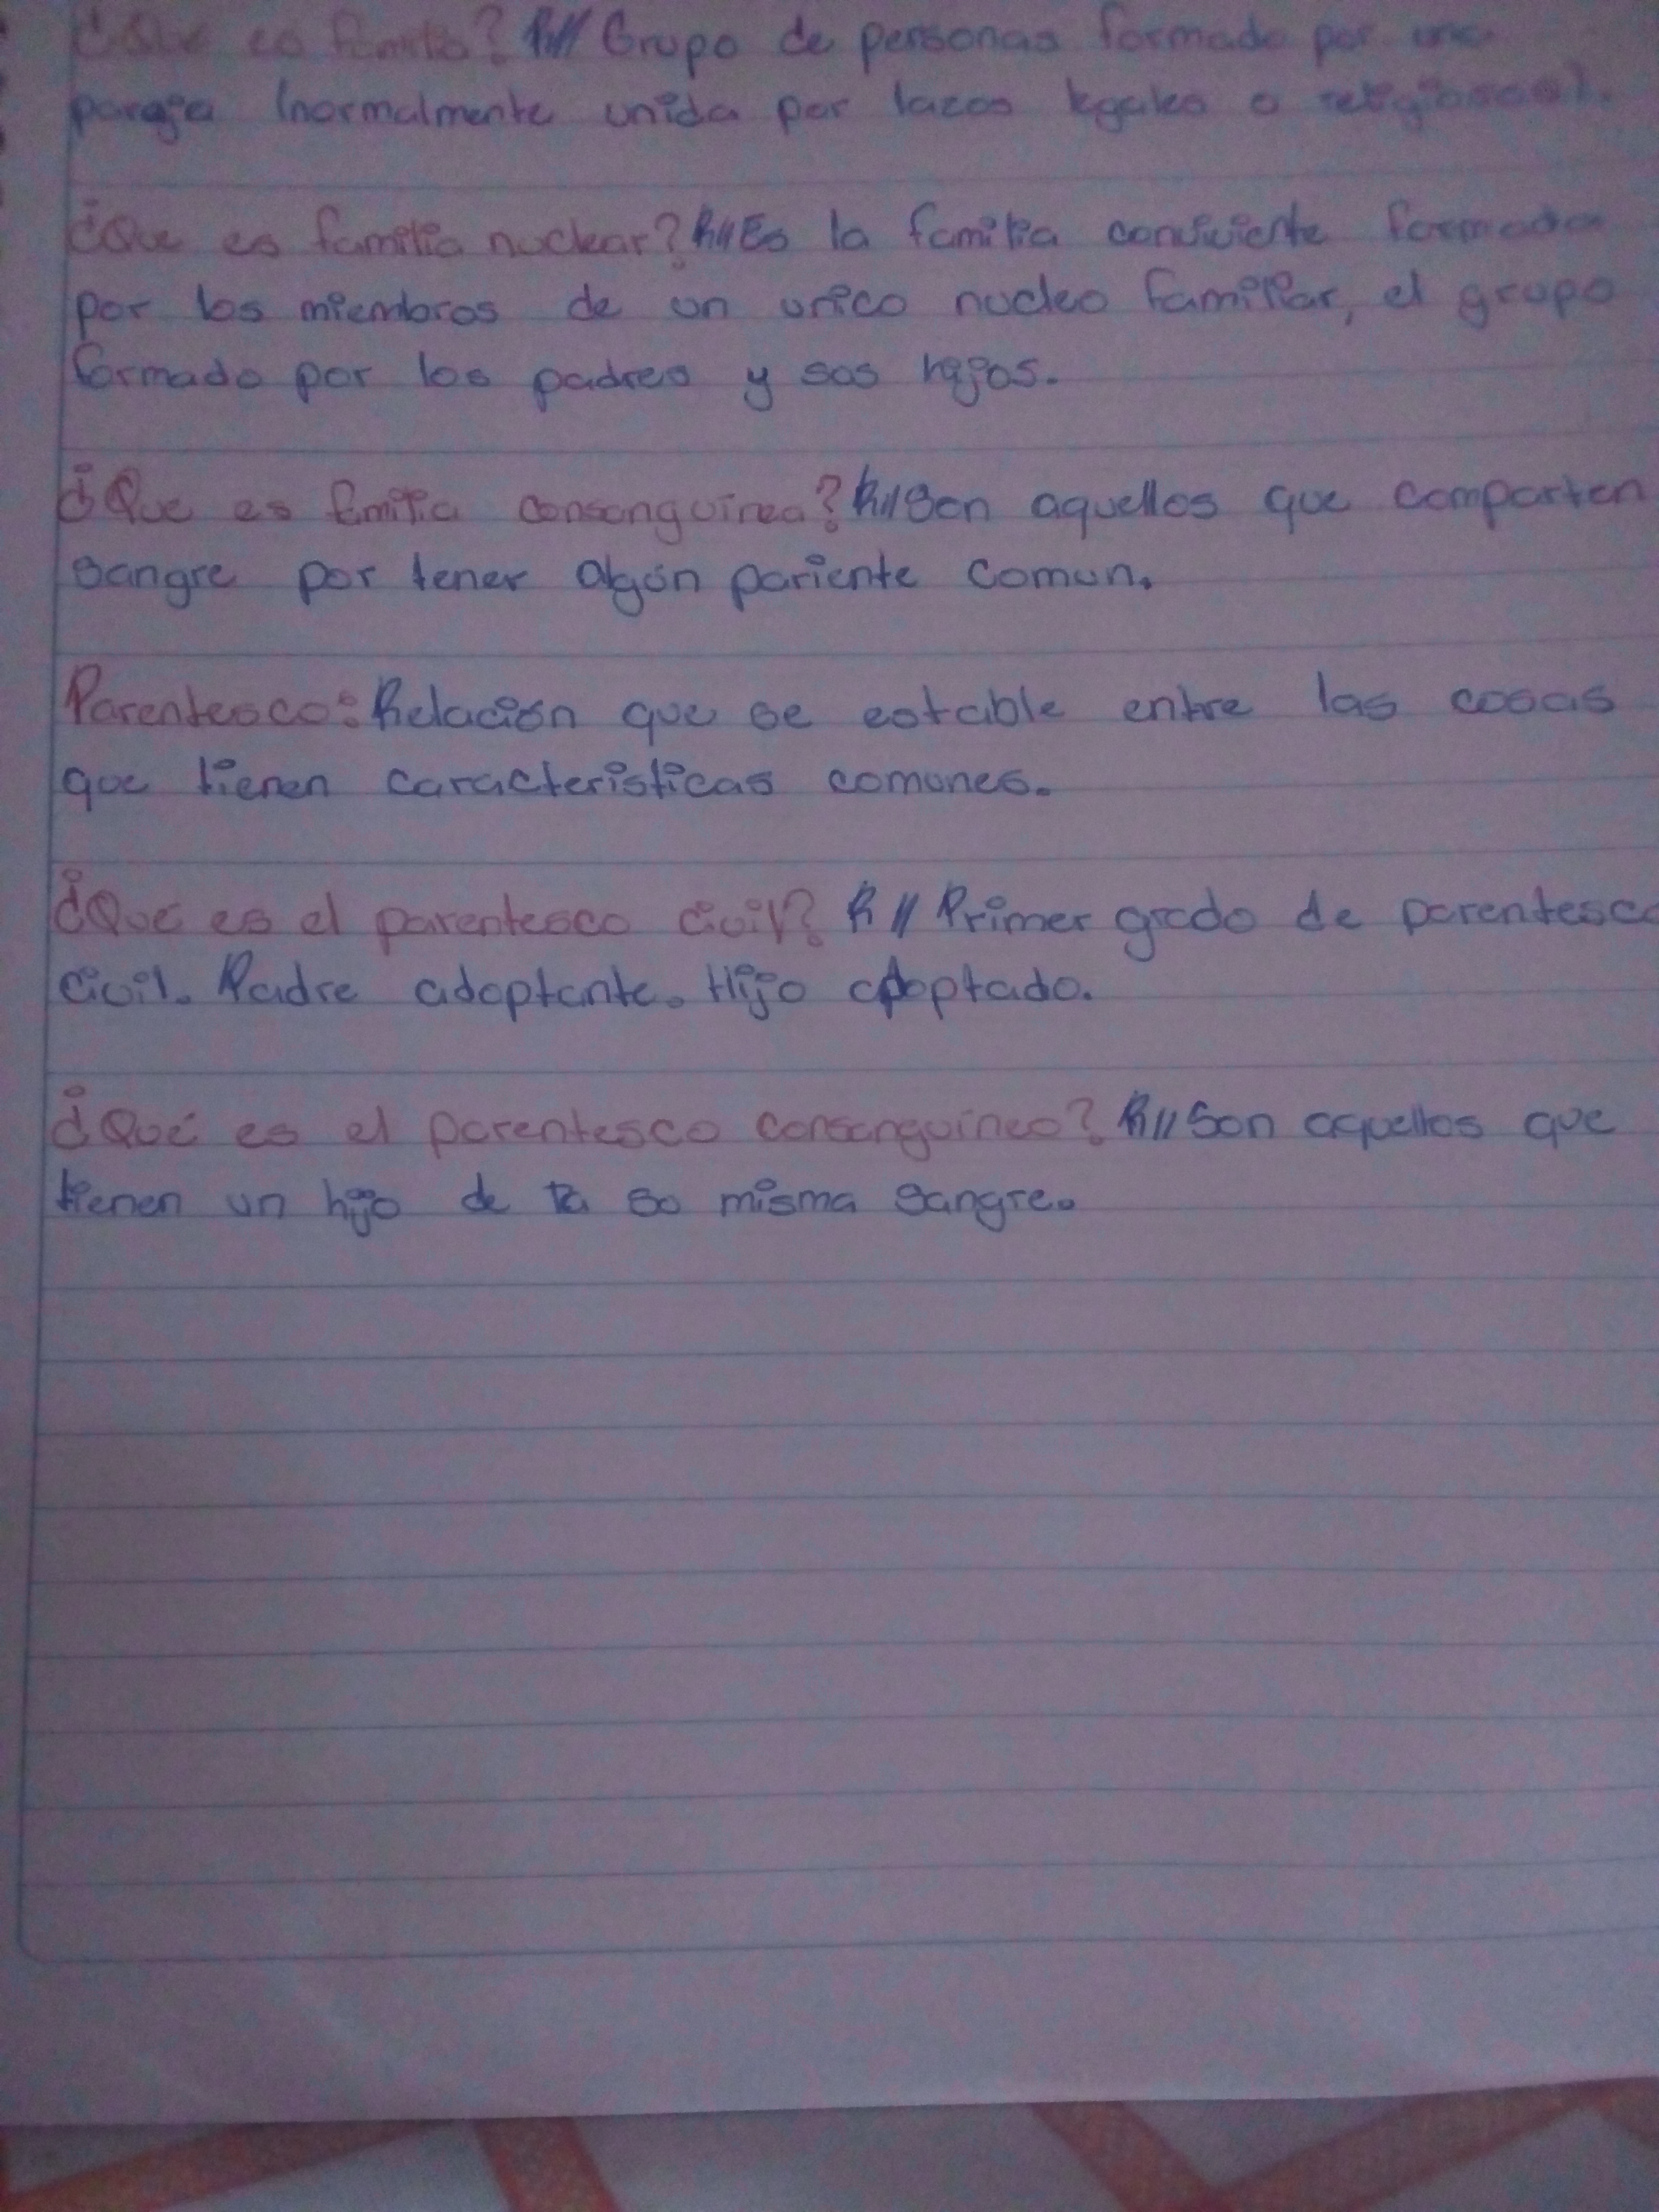 ¿Que es familia? R// Grupo de personas formado por una
pareja (normalmente unida por lazos legales o religiosos).
¿Que es familia nuclear? R// Es la familia conviviente formada
por los miembros de un unico nucleo familiar, el grupo
formado por los padres y sus hijos.
¿Que es familia consanguinea? R// Son aquellos que comparten
sangre por tener algún pariente comun.
Parentesco: Relación que se estable entre las cosas
que tienen caracteristicas comunes.
¿Qué es el parentesco civil? R// Primer grado de parentesco
civil. Padre adoptante. Hijo adoptado.
¿Qué es el parentesco consanguineo? R// Son aquellos que
tienen un hijo de su misma sangre.